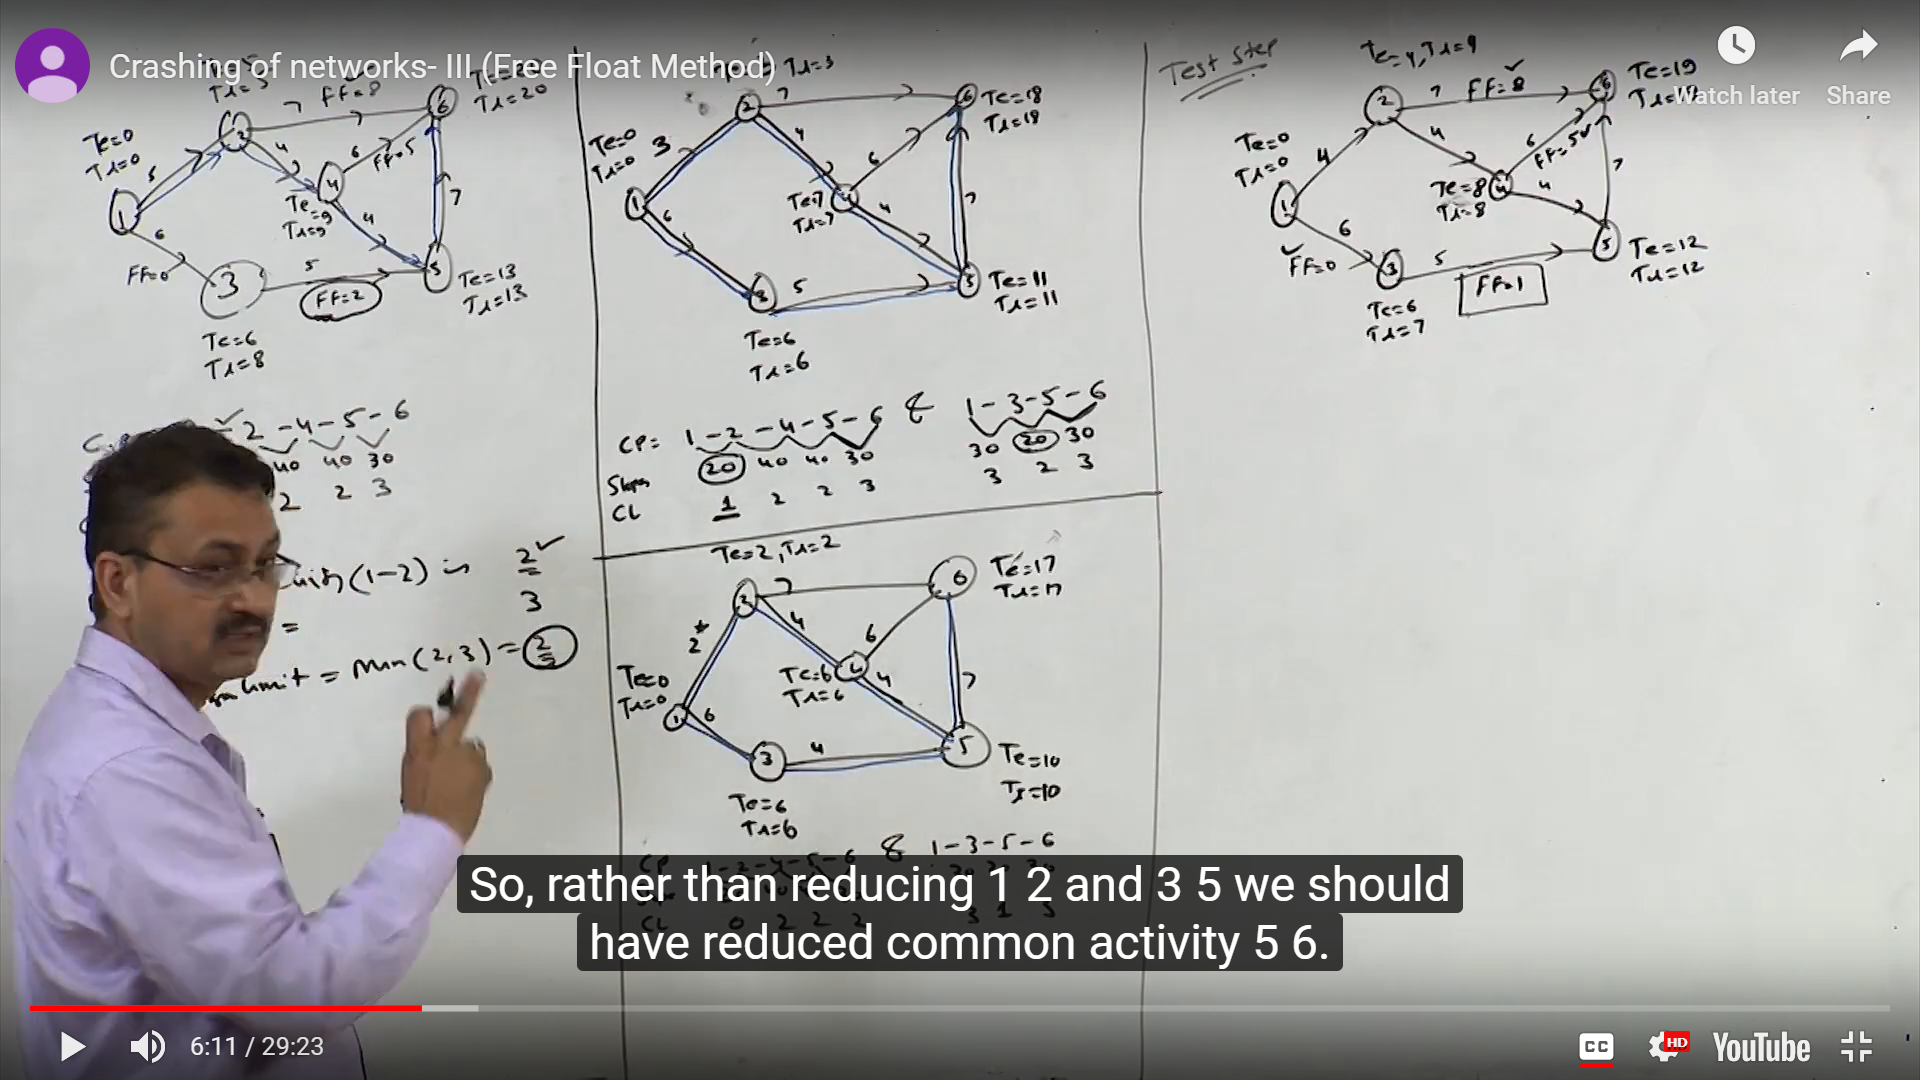 Crashing of networks- III (Free Float Method)
Watch later
Share
TL=20
7 FF=8
6
Te=0
TL=0
5
2
4
6
FF=5
4
Te=9
TL=9
4
7
1
6
FF=0
3
5
FF=2
5
Te=13
TL=13
Te=6
TL=8
2 -4 -5 -6
40 40 30
2 2 3
(1-2) is 2
3
=
limit = Min (2,3) = 2
TL=3
2
7
6
Te=18
TL=18
Te=0
TL=0
3
4
6
1
Te=7
TL=7
4
4
7
6
3
5
5
Te=11
TL=11
Te=6
TL=6
CP= 1-2-4-5-6 & 1-3-5-6
20 40 40 30 30 20 30
Slope
CL 1 2 2 3 3 2 3
Te=2, TL=2
2
7
6
Te=17
TL=17
2*
4
6
Te=0
TL=0
Te=6
TL=6
4
4
7
1
6
3
4
5
Te=10
TL=10
Te=6
TL=6
CP 1-2-4-5-6 & 1-3-5-6
CL 0 2 2 3 3 1 3
Test Step
Te=4, TL=9
2
7 FF=8
6
Te=19
TL=19
Te=0
TL=0
4
4
6
FF=5
Te=8
TL=8
4
4
7
1
6
FF=0
3
5
FF=1
5
Te=12
TL=12
Te=6
TL=7
So, rather than reducing 1 2 and 3 5 we should
have reduced common activity 5 6.
6:11 / 29:23
CC
HD
YouTube